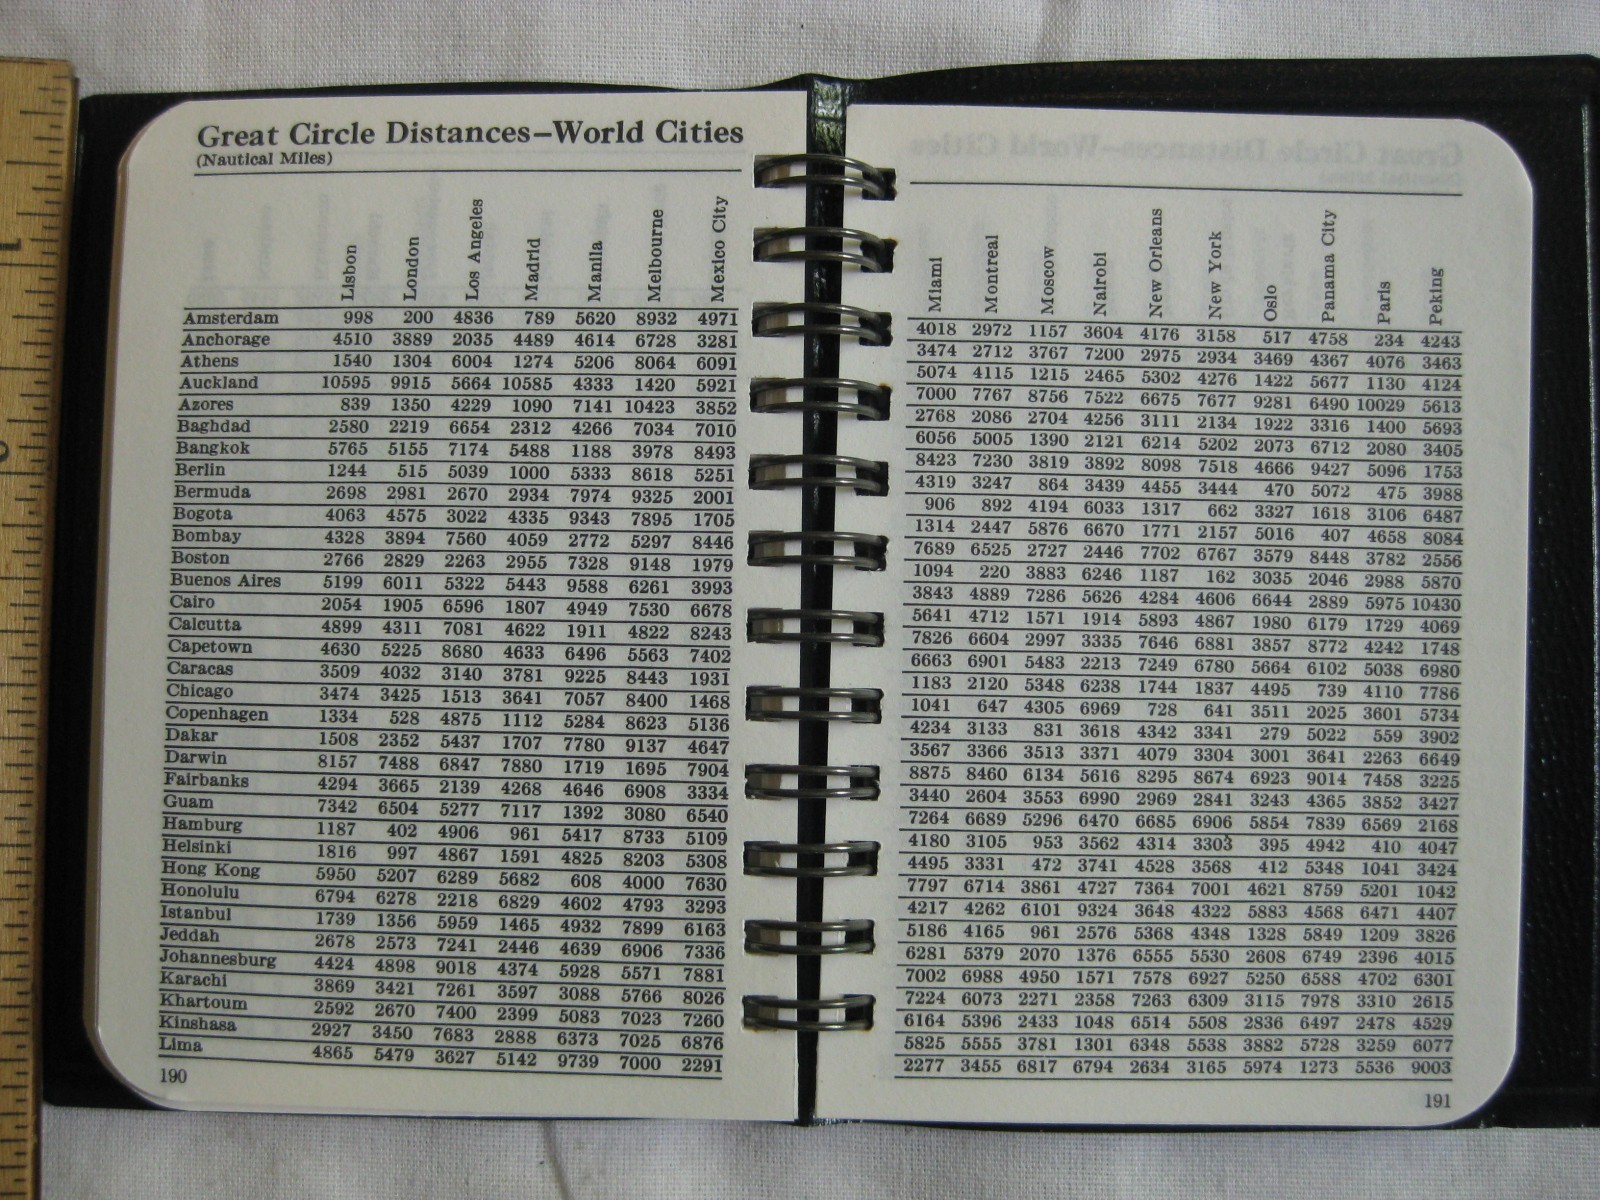 Great Circle Distances–World Cities
(Nautical Miles)
Lisbon London Los Angeles Madrid Manila Melbourne Mexico City
Amsterdam 998 200 4836 789 5620 8932 4971
Anchorage 4510 3889 2035 4489 4614 6728 3281
Athens 1540 1304 6004 1274 5206 8064 6091
Auckland 10595 9915 5664 10585 4333 1420 5921
Azores 839 1350 4229 1090 7141 10423 3852
Baghdad 2580 2219 6654 2312 4266 7034 7010
Bangkok 5765 5155 7174 5488 1188 3978 8493
Berlin 1244 515 5039 1000 5333 8618 5251
Bermuda 2698 2981 2670 2934 7974 9325 2001
Bogota 4063 4575 3022 4335 9343 7895 1705
Bombay 4328 3894 7560 4059 2772 5297 8446
Boston 2766 2829 2263 2955 7328 9148 1979
Buenos Aires 5199 6011 5322 5443 9588 6261 3993
Cairo 2054 1905 6596 1807 4949 7530 6678
Calcutta 4899 4311 7081 4622 1911 4822 8243
Capetown 4630 5225 8680 4633 6496 5563 7402
Caracas 3509 4032 3140 3781 9225 8443 1931
Chicago 3474 3425 1513 3641 7057 8400 1468
Copenhagen 1334 528 4875 1112 5284 8623 5136
Dakar 1508 2352 5437 1707 7780 9137 4647
Darwin 8157 7488 6847 7880 1719 1695 7904
Fairbanks 4294 3665 2139 4268 4646 6908 3334
Guam 7342 6504 5277 7117 1392 3080 6540
Hamburg 1187 402 4906 961 5417 8733 5109
Helsinki 1816 997 4867 1591 4825 8203 5308
Hong Kong 5950 5207 6289 5682 608 4000 7630
Honolulu 6794 6278 2218 6829 4602 4793 3293
Istanbul 1739 1356 5959 1465 4932 7899 6163
Jeddah 2678 2573 7241 2446 4639 6906 7336
Johannesburg 4424 4898 9018 4374 5928 5571 7881
Karachi 3869 3421 7261 3597 3088 5766 8026
Khartoum 2592 2670 7400 2399 5083 7023 7260
Kinshasa 2927 3450 7683 2888 6373 7025 6876
Lima 4865 5479 3627 5142 9739 7000 2291
190
Miami Montreal Moscow Nairobi New Orleans New York Oslo Panama City Paris Peking
4018 2972 1157 3604 4176 3158 517 4758 234 4243
3474 2712 3767 7200 2975 2934 3469 4367 4076 3463
5074 4115 1215 2465 5302 4276 1422 5677 1130 4124
7000 7767 8756 7522 6675 7677 9281 6490 10029 5613
2768 2086 2704 4256 3111 2134 1922 3316 1400 5693
6056 5005 1390 2121 6214 5202 2073 6712 2080 3405
8423 7230 3819 3892 8098 7518 4666 9427 5096 1753
4319 3247 864 3439 4455 3444 470 5072 475 3988
906 892 4194 6033 1317 662 3327 1618 3106 6487
1314 2447 5876 6670 1771 2157 5016 407 4658 8084
7689 6525 2727 2446 7702 6767 3579 8448 3782 2556
1094 220 3883 6246 1187 162 3035 2046 2988 5870
3843 4889 7286 5626 4284 4606 6644 2889 5975 10430
5641 4712 1571 1914 5893 4867 1980 6179 1729 4069
7826 6604 2997 3335 7646 6881 3857 8772 4242 1748
6663 6901 5483 2213 7249 6780 5664 6102 5038 6980
1183 2120 5348 6238 1744 1837 4495 739 4110 7786
1041 647 4305 6969 728 641 3511 2025 3601 5734
4234 3133 831 3618 4342 3341 279 5022 559 3902
3567 3366 3513 3371 4079 3304 3001 3641 2263 6649
8875 8460 6134 5616 8295 8674 6923 9014 7458 3225
3440 2604 3553 6990 2969 2841 3243 4365 3852 3427
7264 6689 5296 6470 6685 6906 5854 7839 6569 2168
4180 3105 953 3562 4314 3303 395 4942 410 4047
4495 3331 472 3741 4528 3568 412 5348 1041 3424
7797 6714 3861 4727 7364 7001 4621 8759 5201 1042
4217 4262 6101 9324 3648 4322 5883 4568 6471 4407
5186 4165 961 2576 5368 4348 1328 5849 1209 3826
6281 5379 2070 1376 6555 5530 2608 6749 2396 4015
7002 6988 4950 1571 7578 6927 5250 6588 4702 6301
7224 6073 2271 2358 7263 6309 3115 7978 3310 2615
6164 5396 2433 1048 6514 5508 2836 6497 2478 4529
5825 5555 3781 1301 6348 5538 3882 5728 3259 6077
2277 3455 6817 6794 2634 3165 5974 1273 5536 9003
191